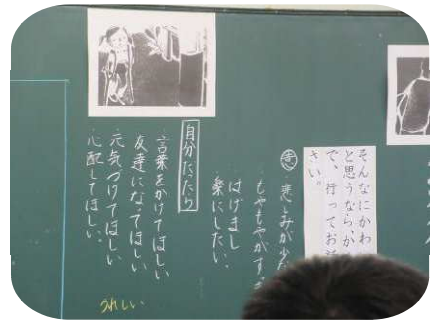 そんなにかわ
と思うなら、か
で、行ってお
さい。
悲しみが少
もやもやがす
はげまし
楽にしたい。
自分だったら
言葉をかけてほしい
友達になってほしい
元気づけてほしい
心配してほしい。
うれしい